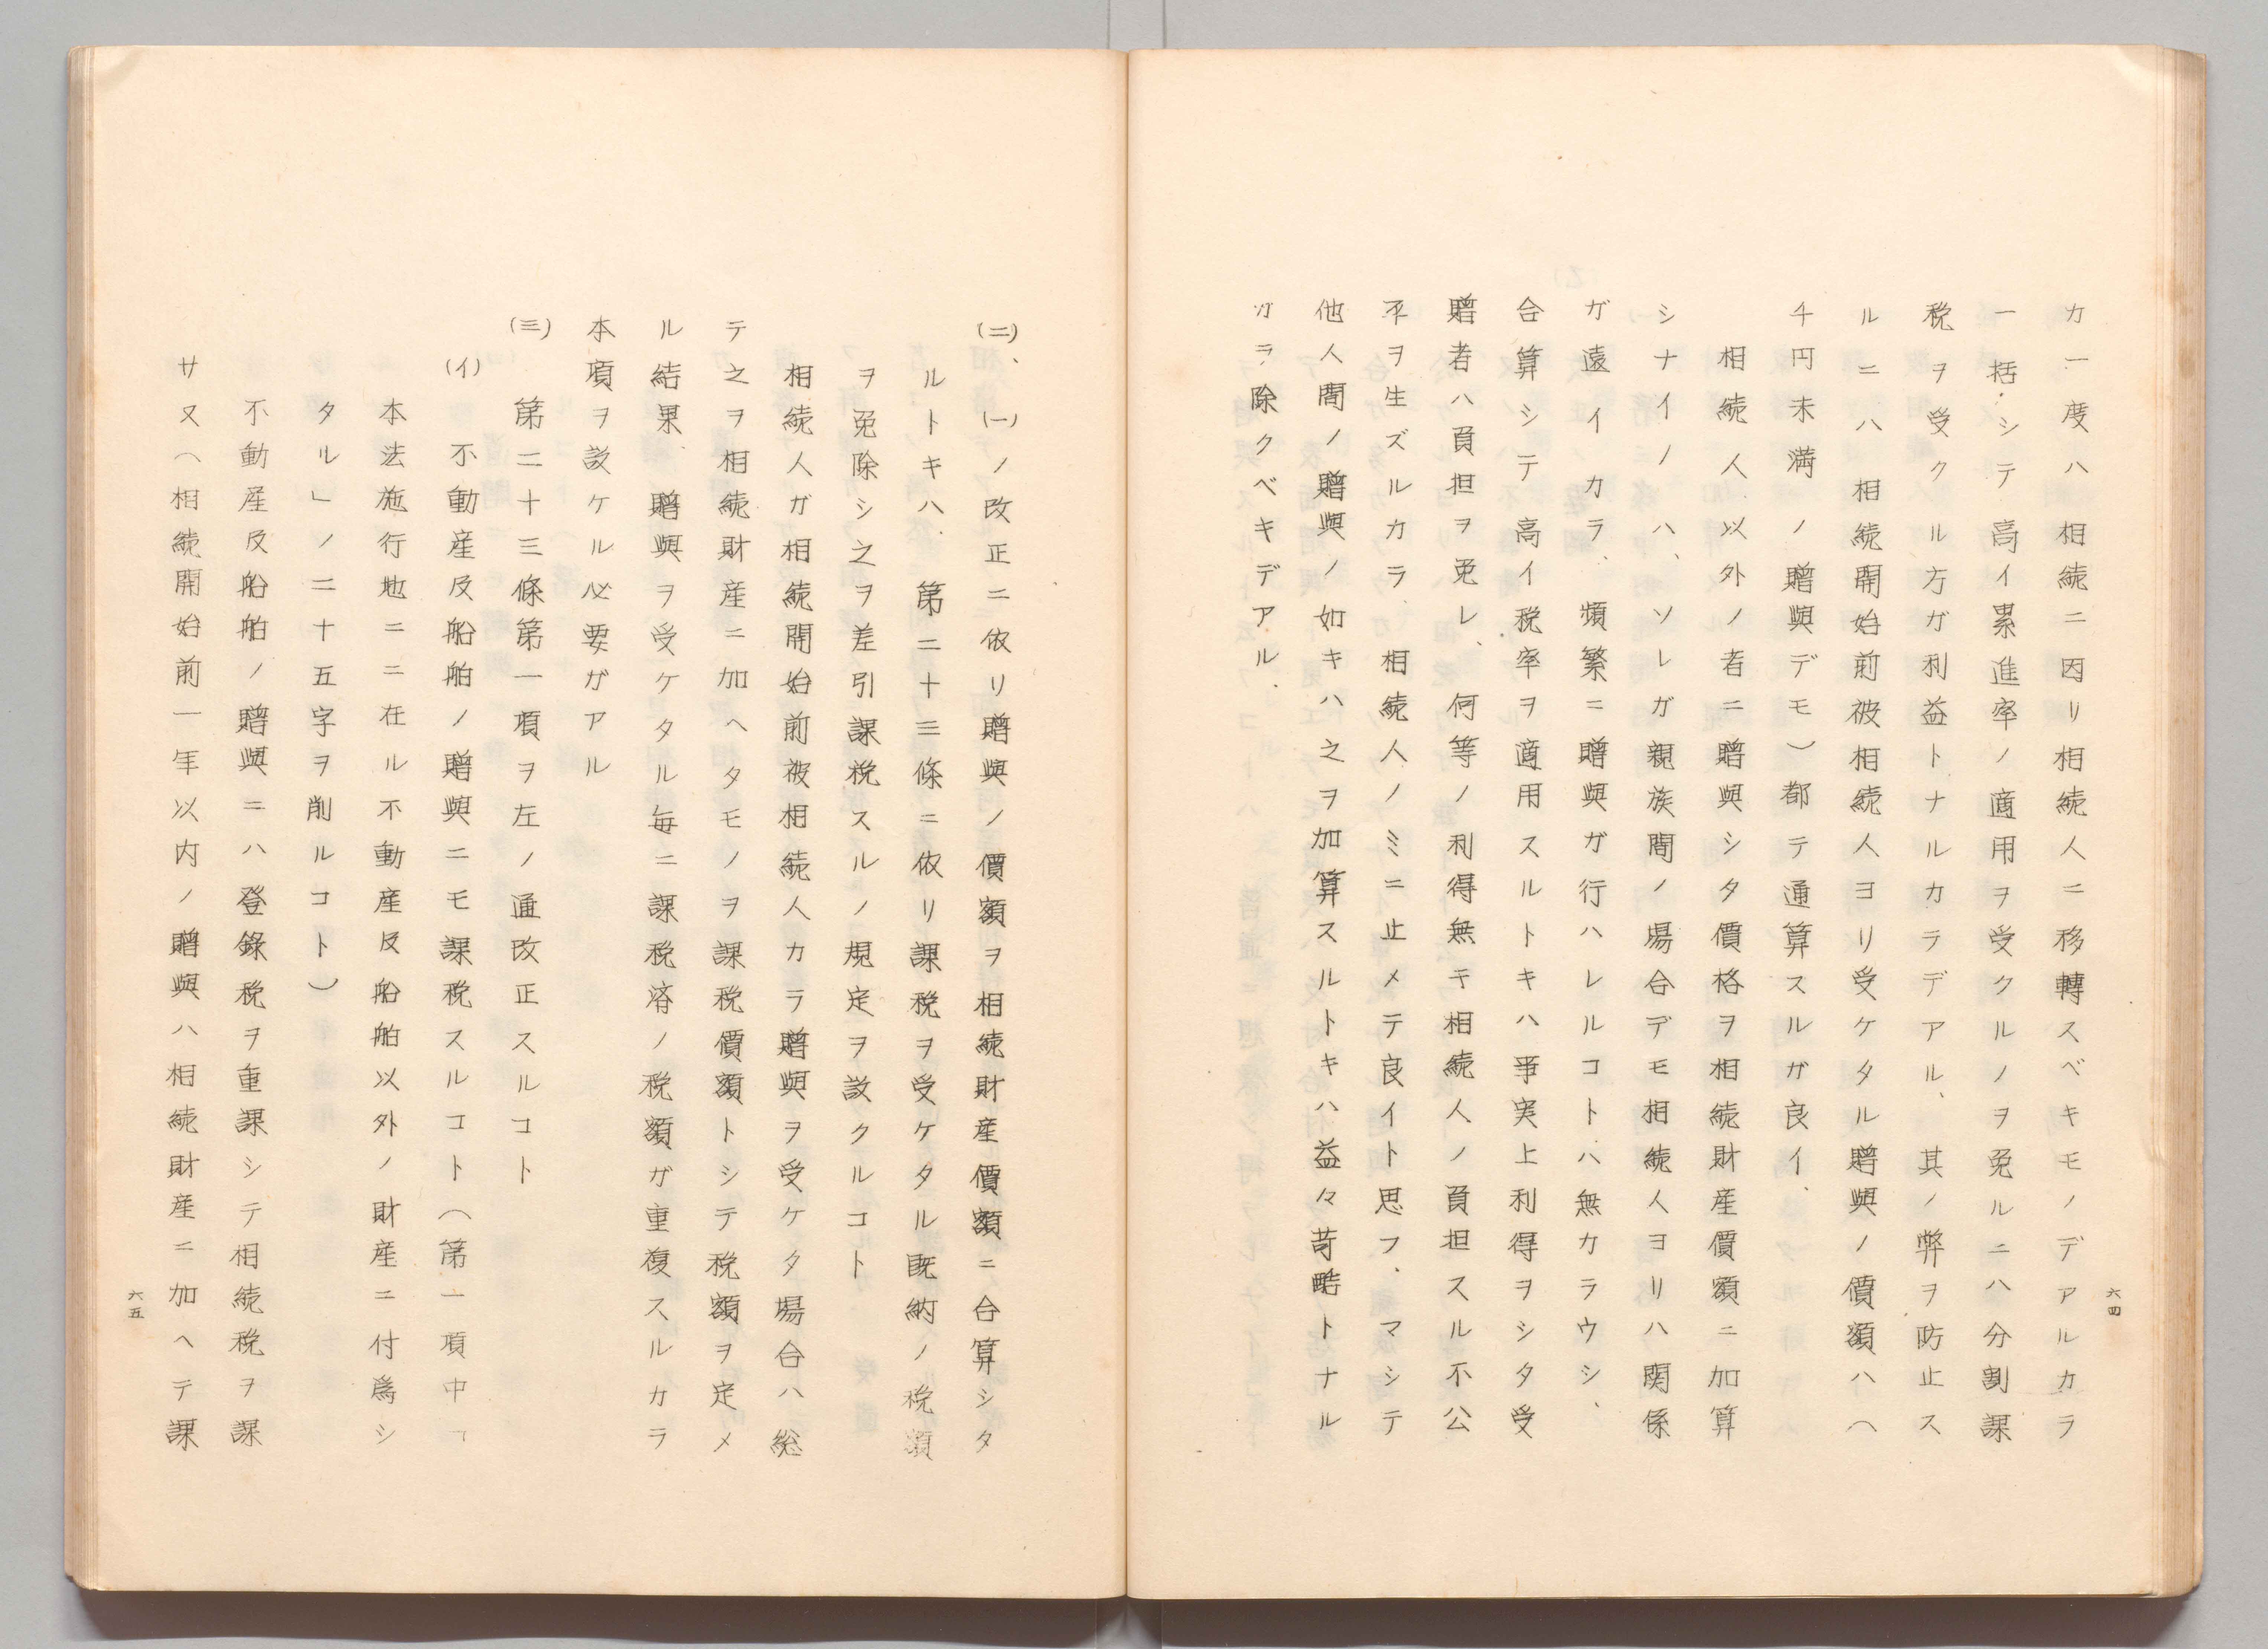 カ一度ハ相続ニ因リ相続人ニ移轉スベキモノデアルカラ
一括シテ高イ累進率ノ適用ヲ受クルノヲ免ルニハ分割課
税ヲ受クル方ガ利益トナルカラデアル、其ノ弊ヲ防止ス
ルニハ相続開始前被相続人ヨリ受ケタル贈與ノ價額ハ（
千円未満ノ贈與デモ）都テ通算スルガ良イ、
相続人以外ノ者ニ贈與シタ價格ヲ相続財産價額ニ加算
シナイノハ、ソレガ親族間ノ場合デモ相続人ヨリハ関係
ガ遠イカラ、頻繁ニ贈與ガ行ハレルコトハ無カラウシ、
合算シテ高イ税率ヲ適用スルトキハ事実上利得ヲシタ受
贈者ハ負担ヲ免レ、何等ノ利得無キ相続人ノ負担スル不公
平ヲ生ズルカラ、相続人ノミニ止メテ良イト思フ、マシテ
他人間ノ贈與ノ如キハ之ヲ加算スルトキハ益々苛酷トナル
カラ除クベキデアル、
六四
(二)、(一)ノ改正ニ依リ贈與ノ價額ヲ相続財産價額ニ合算シタ
ルトキハ、第二十三條ニ依リ課税ヲ受ケタル既納ノ税額
ヲ免除シ之ヲ差引課税スルノ規定ヲ設クルコト
相続人ガ相続開始前被相続人カラ贈與ヲ受ケタ場合ハ総
テ之ヲ相続財産ニ加ヘタモノヲ課税價額トシテ税額ヲ定メ
ル結果、贈與ヲ受ケタル毎ニ課税済ノ税額ガ重復スルカラ
本項ヲ設ケル必要ガアル
(三)第二十三條第一項ヲ左ノ通改正スルコト
(イ)不動産及船舶ノ贈與ニモ課税スルコト（第一項中「
本法施行地ニニ在ル不動産及船舶以外ノ財産ニ付爲シ
タル」ノ二十五字ヲ削ルコト）
不動産及船舶ノ贈與ニハ登錄税ヲ重課シテ相続税ヲ課
サ又（相続開始前一年以内ノ贈與ハ相続財産ニ加ヘテ課
六五